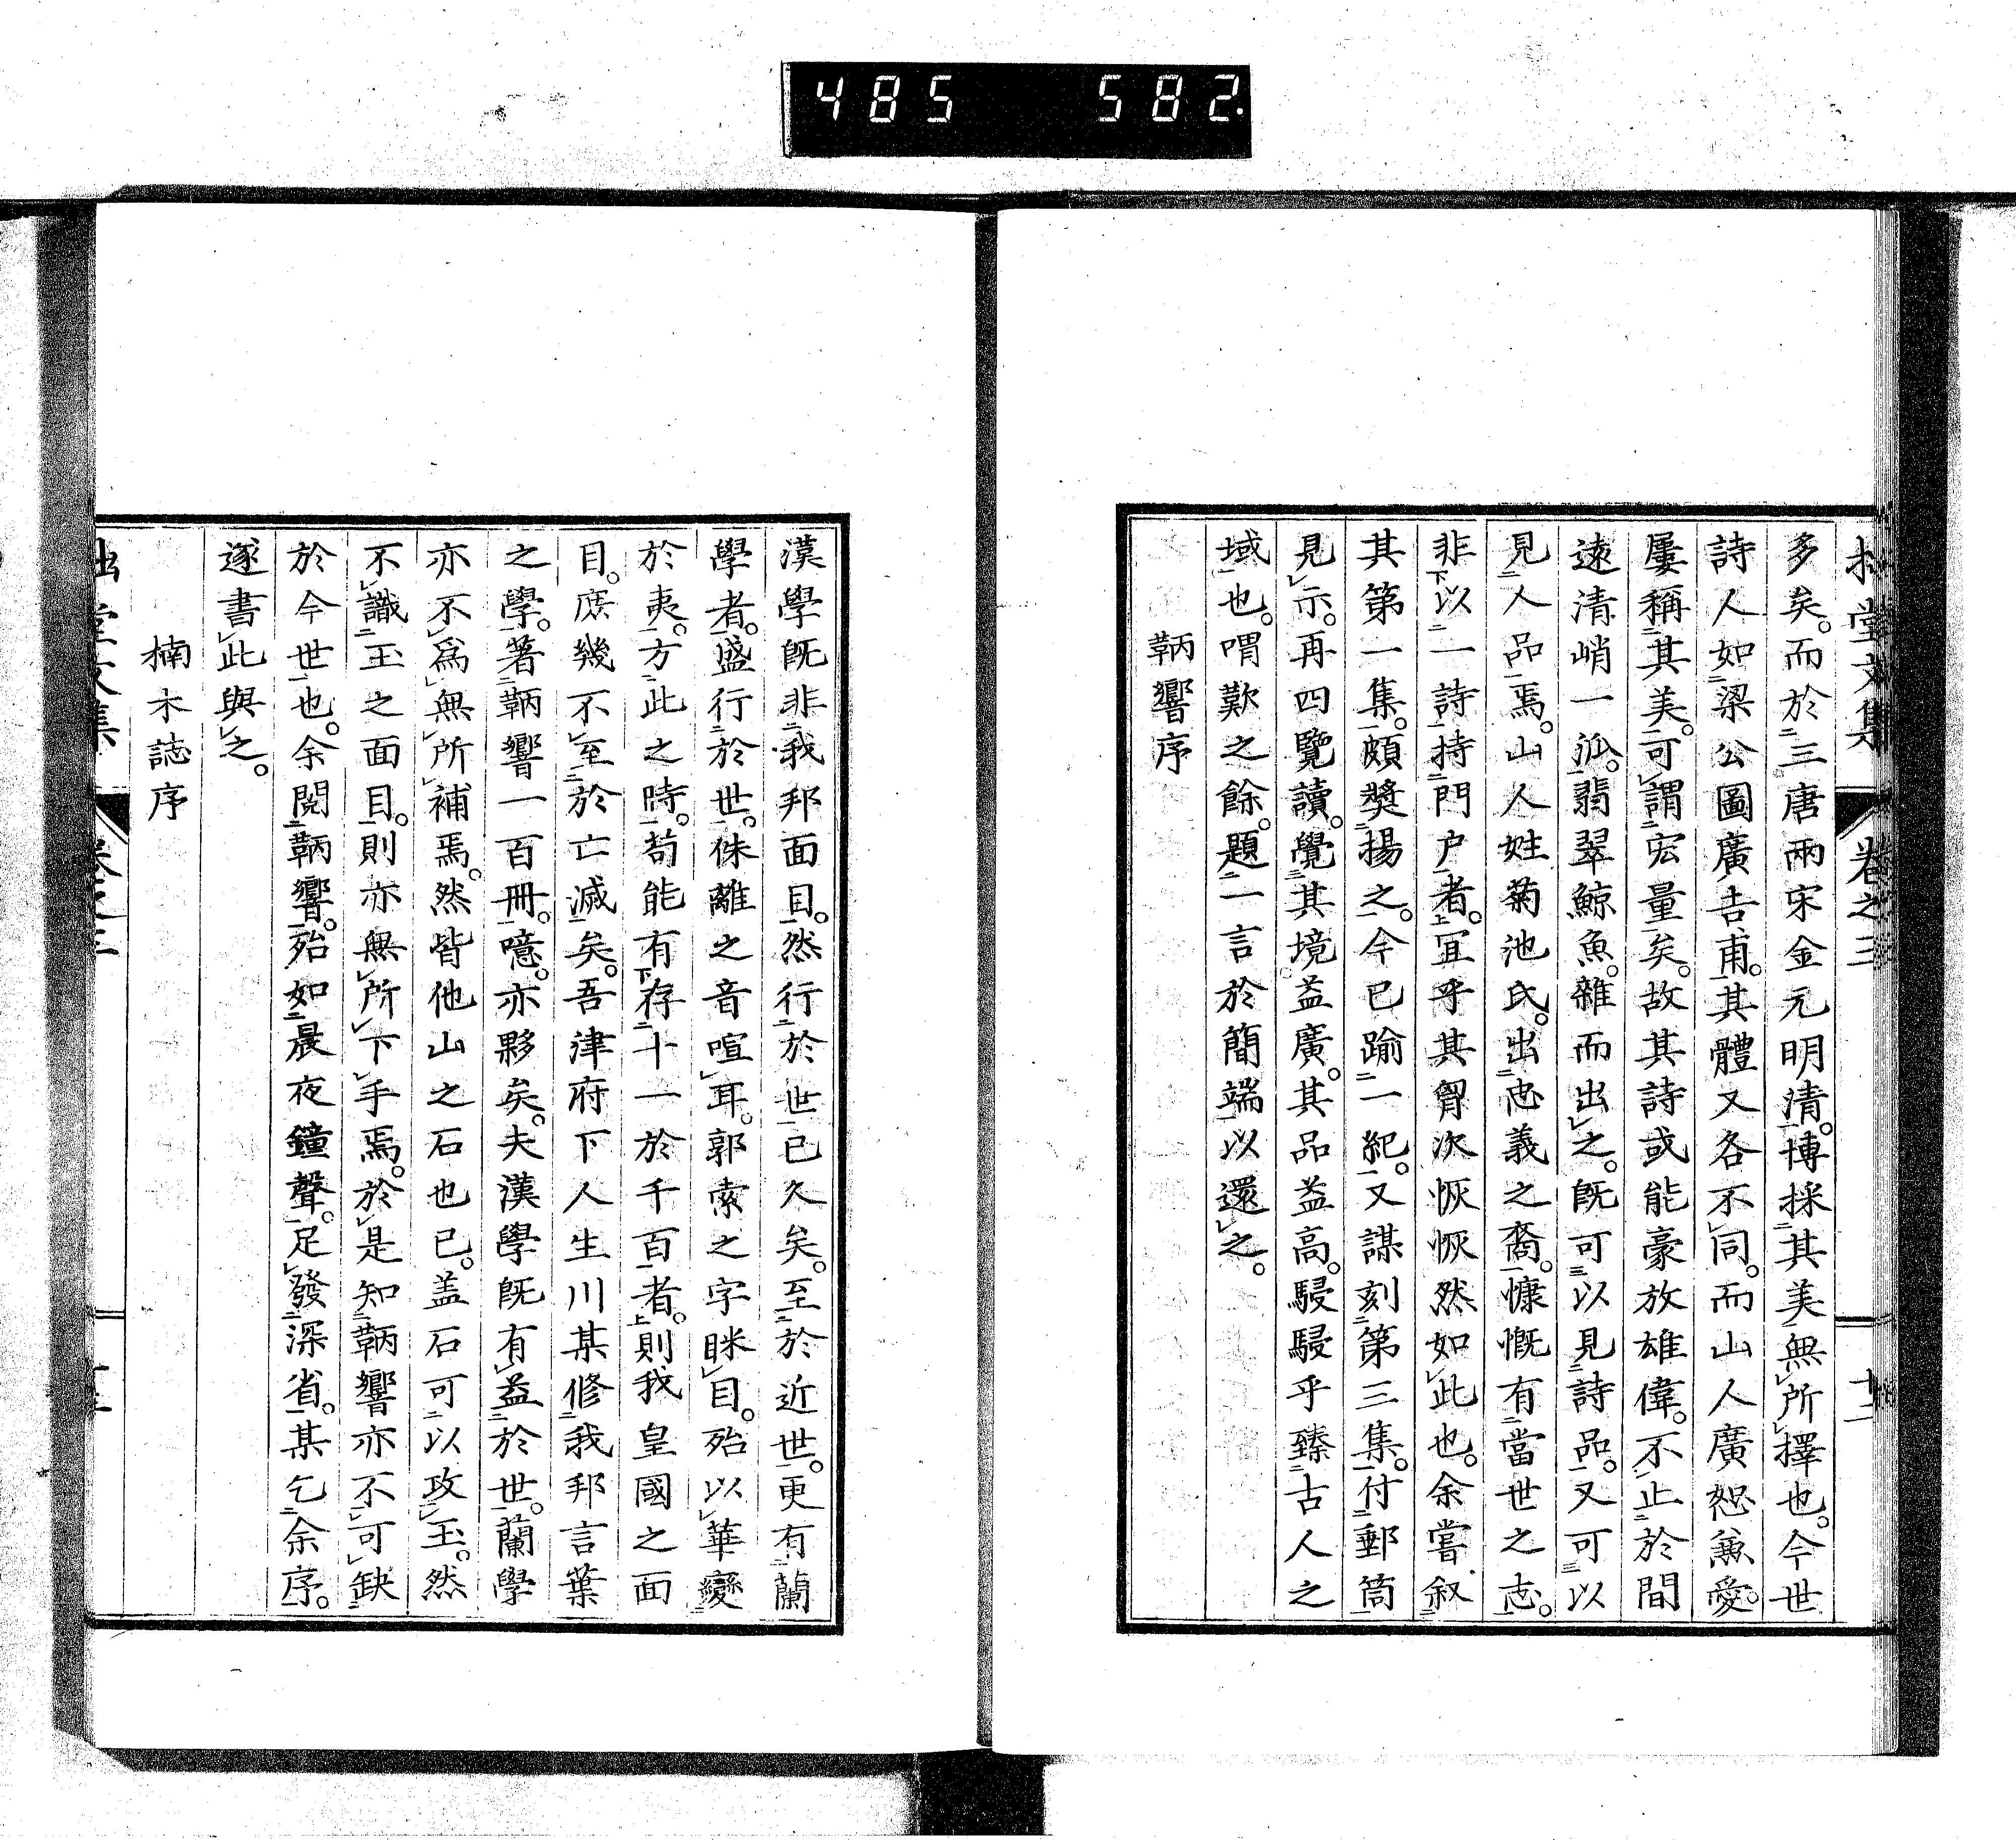 485 582.
拙堂文集 卷之三 十一
多矣。而於三唐兩宋金元明清。博採其美無所擇也。今世
詩人如梁公圖廣吉甫。其體又各不同。而山人廣恕兼愛。
屢稱其美。可謂宏量矣。故其詩或能豪放雄偉。不止於間
遠清峭一派。翡翠鯨魚。雜而出之。既可以見詩品。又可以
見人品焉。山人姓菊池氏。出忠義之裔。慷慨有當世之志。
非以一詩持門戶者。宜乎其胷次恢恢然如此也。余嘗叙
其第一集。頗獎揚之。今已踰一紀。又謀刻第三集。付郵筒
見示。再四覽讀。覺其境益廣。其品益高。駸駸乎臻古人之
域也。喟歎之餘。題一言於簡端以還之。
鞆響序
漢學既非我邦面目。然行於世已久矣。至於近世。更有蘭
學者。盛行於世。侏離之音喧耳。郭索之字眯目。殆以華變
於夷。方此之時。苟能有存十一於千百者。則我皇國之面
目。庶幾不至於亡滅矣。吾津府下人生川某修我邦言葉
之學。著鞆響一百冊。噫。亦夥矣。夫漢學既有益於世。蘭學
亦不爲無所補焉。然皆他山之石也已。盖石可以攻玉。然
不識玉之面目。則亦無所下手焉。於是知鞆響亦不可缺
於今世也。余閱鞆響。殆如晨夜鐘聲。足發深省。某乞余序。
遂書此與之。
楠木誌序
拙堂文集 卷之三